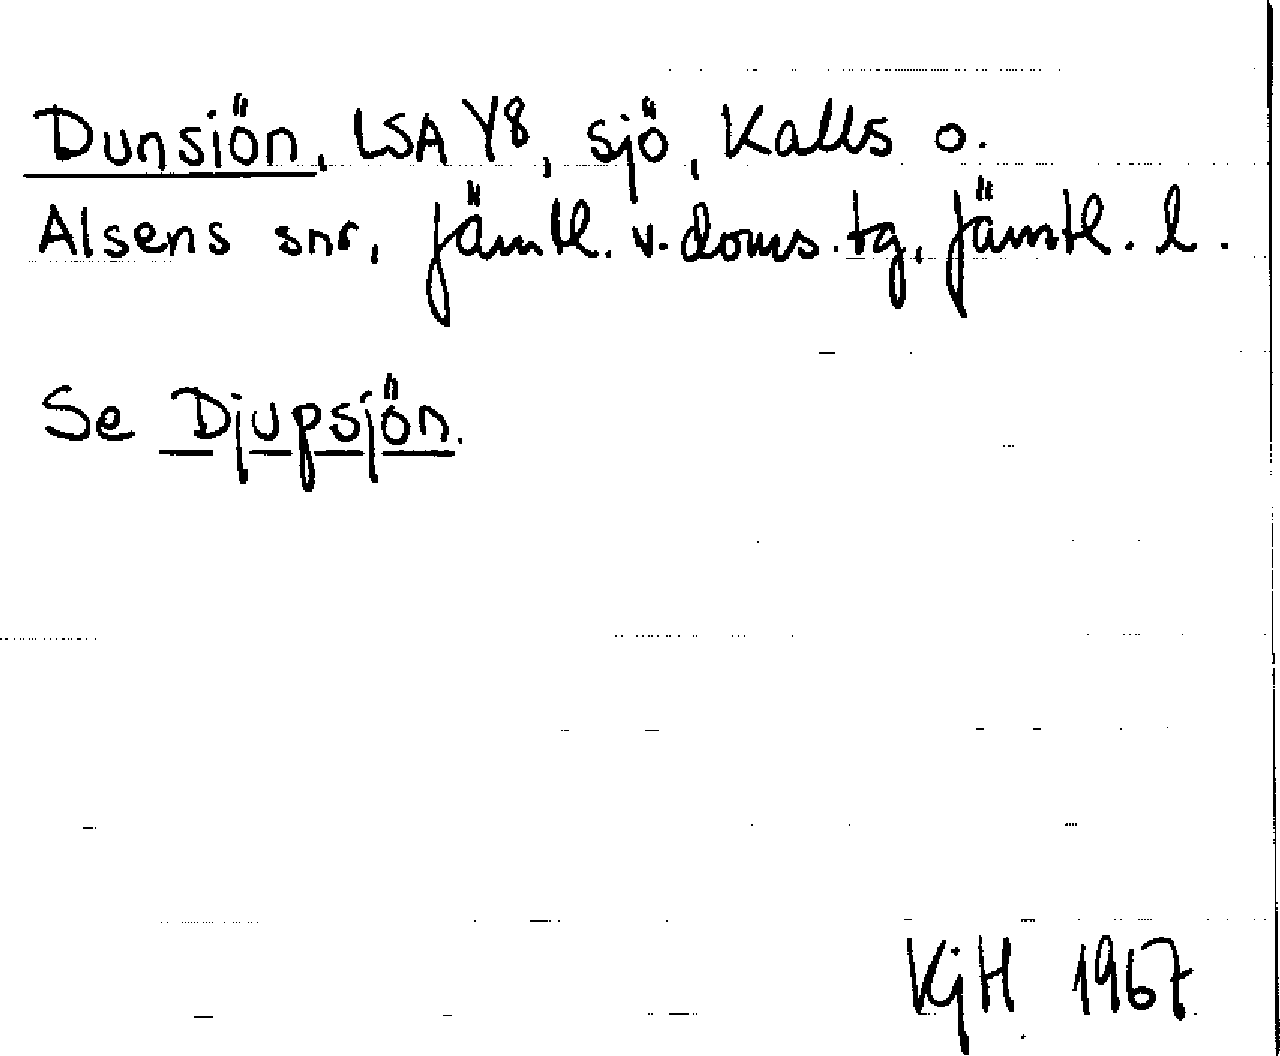 Dunsiön, LSA Y8, sjö, Kalls o.
Alsens snr, Jämtl. v. doms. tg, Jämtl. l.
Se Djupsjön.
KjH 1967